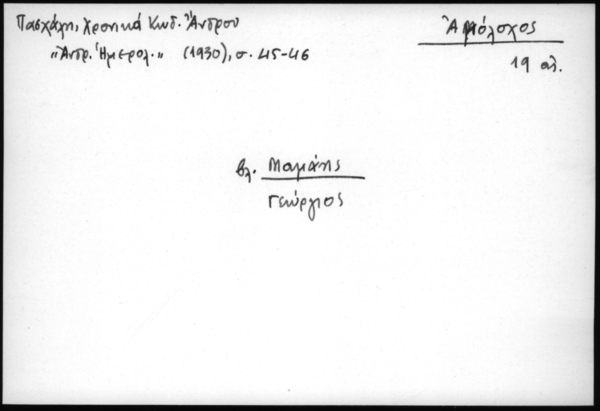 Πασχάλη, Χρονικά Κωδ. Ἄνδρου
„Ἀνδρ. Ἡμερολ.„ (1930), σ. 45-46
Ἀμόλοχος
19 αἰ.
βλ. Μαμάης
Γεώργιος